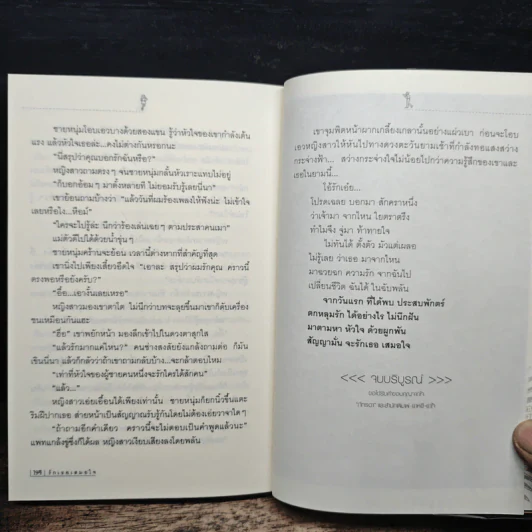 ชายหนุ่มโอบเอวบางด้วยสองแขน รู้ว่าหัวใจของเขากำลังเต้น
แรง แล้วหัวใจเธอล่ะ...คงไม่ต่างกันหรอกนะ
"นี่สรุปว่าคุณบอกรักฉันหรือ?"
หญิงสาวถามตรงๆ จนชายหนุ่มกลั้นหัวเราะแทบไม่อยู่
"ก็บอกอ้อมๆ มาตั้งหลายที ไม่ยอมรับรู้เลยนี่นา"
เขาย้อนถามบ้างว่า "แล้ววันที่ผมร้องเพลงให้ฟังน่ะ ไม่เข้าใจ
เลยหรือไง...หือม์"
"ใครจะไปรู้ล่ะ นึกว่าร้องเล่นเฉยๆ ตามประสาคนเมา"
แม่ตัวดีไปได้ด้วยน้ำขุ่นๆ
ชายหนุ่มคร้านจะย้อน เวลานี้ต่างหากที่สำคัญที่สุด
เขานิ่งไปเพียงเสี้ยวอึดใจ "เอาละ สรุปว่าผมรักคุณ คราวนี้
ตรงพอหรือยังครับ?"
"อื้อ...เอางั้นเลยเหรอ"
หญิงสาวมองเขาตาโต ไม่นึกว่าบทจะลุยขึ้นมาเขาก็ดีเครื่อง
ชนเหมือนกันแฮะ
"ฮื่อ" เขาพยักหน้า มองลึกเข้าไปในดวงตาสุกใส
"แล้วรักมากแค่ไหน?" คนช่างสงสัยยังแกล้งถามต่อ ก็มัน
เขินนี่นา แล้วก็กลัวว่าถ้าเขาถามกลับบ้าง...จะกล้าตอบไหม
"เท่าที่หัวใจของผู้ชายคนหนึ่งจะรักใครได้สักคน"
"แล้ว..."
หญิงสาวเอ่ยเอื้อนได้เพียงเท่านั้น ชายหนุ่มก็ยกนิ้วขึ้นแตะ
ริมฝีปากเธอ ส่ายหน้าเป็นสัญญาณรับรู้กันโดยไม่ต้องเอ่ยวาจาใดๆ
"ถ้าถามอีกคำเดียว คราวนี้จะไม่ตอบเป็นคำพูดแล้วนะ"
แพทแกล้งขู่ซึ่งก็ได้ผล หญิงสาวเงียบเสียงลงโดยพลัน
รักเธอเสมอใจ
เขาจุมพิตหน้าผากเกลี้ยงเกลานั้นอย่างแผ่วเบา ก่อนจะโอบ
เอวหญิงสาวให้หันไปทางดวงตะวันยามเช้าที่กำลังทอแสงสว่าง
กระจ่างฟ้า... สว่างกระจ่างใจไม่น้อยไปกว่าความรู้สึกของเขาและ
เธอในยามนี้...
ใช้รักเอ๋ย...
โปรดเฉลย บอกมา สักคราหนึ่ง
ว่าเจ้ามา จากไหน ใยตราตรึง
ทำไมจึง จู่มา ท้าทายใจ
ไม่ทันได้ ตั้งตัว มัวแต่เผลอ
ไม่รู้เลย ว่าเธอ มาจากไหน
มาฉวยฉก ความรัก จากฉันไป
เปลี่ยนชีวิต ฉันได้ ในฉับพลัน
จากวันแรก ที่ได้พบ ประสบพักตร์
ตกหลุมรัก ได้อย่างไร ไม่นึกฝัน
มาตามหา หัวใจ ด้วยผูกพัน
สัญญามั่น จะรักเธอ เสมอใจ
<<< จบบริบูรณ์ >>>